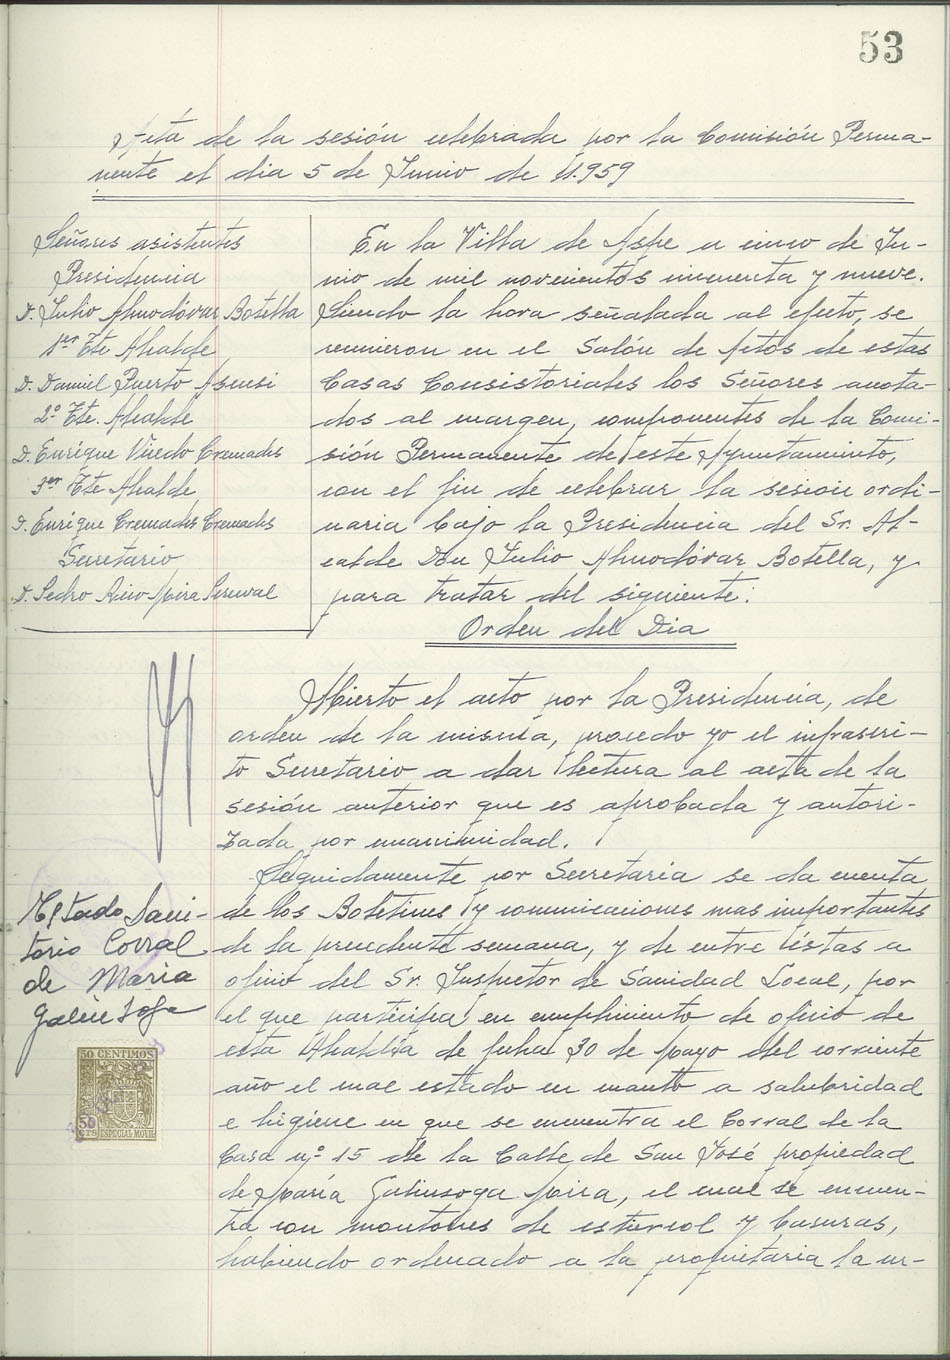 53
Acta de la sesión celebrada por la Comisión Perma-
nente el dia 5 de Junio de 1.959
Señores asistentes
Presidencia
D. Julio Almodóvar Botella
1er Tte Alcalde
D. Daniel Puerto Asensi
2º Tte. Alcalde
D. Enrique Viñedo Cremades
3er Tte Alcalde,
D. Enrique Cremades Cremades
Secretario
D. Pedro Rico Mira Perceval
En la Villa de Aspe a cinco de Ju-
nio de mil novecientos cincuenta y nueve.
Siendo la hora señalada al efecto, se
reunieron en el Salón de Actos de estas
Casas Consistoriales los Señores anota-
dos al margen, componentes de la Comi-
sión Permanente de este Ayuntamiento,
con el fin de celebrar la sesion ordi-
naria bajo la Presidencia del Sr. Al-
calde Don Julio Almodóvar Botella, y
para tratar del siguiente:
Orden del Dia
Abierto el acto por la Presidencia, de
orden de la misma, procedo yo el infrascri-
to Secretario a dar lectura al acta de la
sesión anterior que es aprobada y autori-
zada por unanimidad.
Seguidamente por Secretaria se da cuenta
de los Boletines y comunicaciones mas importantes
de la precedente semana, y de entre éstas a
oficio del Sr. Inspector de Sanidad Local, por
el que participa en cumplimiento de oficio de
esta Alcaldía de fecha 30 de mayo del corriente
año el mal estado en cuanto a salubridad
e higiene en que se encuentra el Corral de la
Casa nº 15 de la Calle de San José propiedad
de María Galinsoga Mira, el cual se encuen-
tra con montones de estiercol y basuras,
habiendo ordenado a la propietaria la ur-
Estado Sani-
tario Corral
de Maria
50 CENTIMOS
50
CTS
ESPECIAL MOVIL